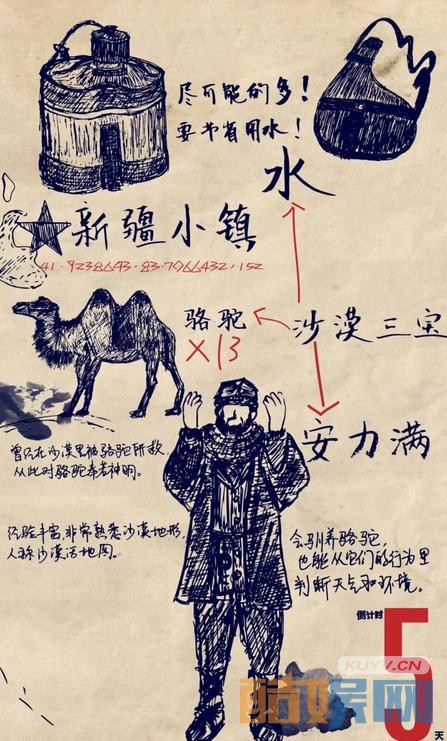 尽可能的多！
要节省用水！
水
新疆小镇
41.9238693.83.7966432.152
骆驼
X13
沙漠三宝
安力满
曾经在沙漠里被骆驼所救,
从此对骆驼奉若神明。
经验丰富,非常熟悉沙漠地形,
人称沙漠活地图。
会驯养骆驼,
也能从它们的行为里
判断天气和环境。
倒计时
5
天
KUYV.CN
酷娱网